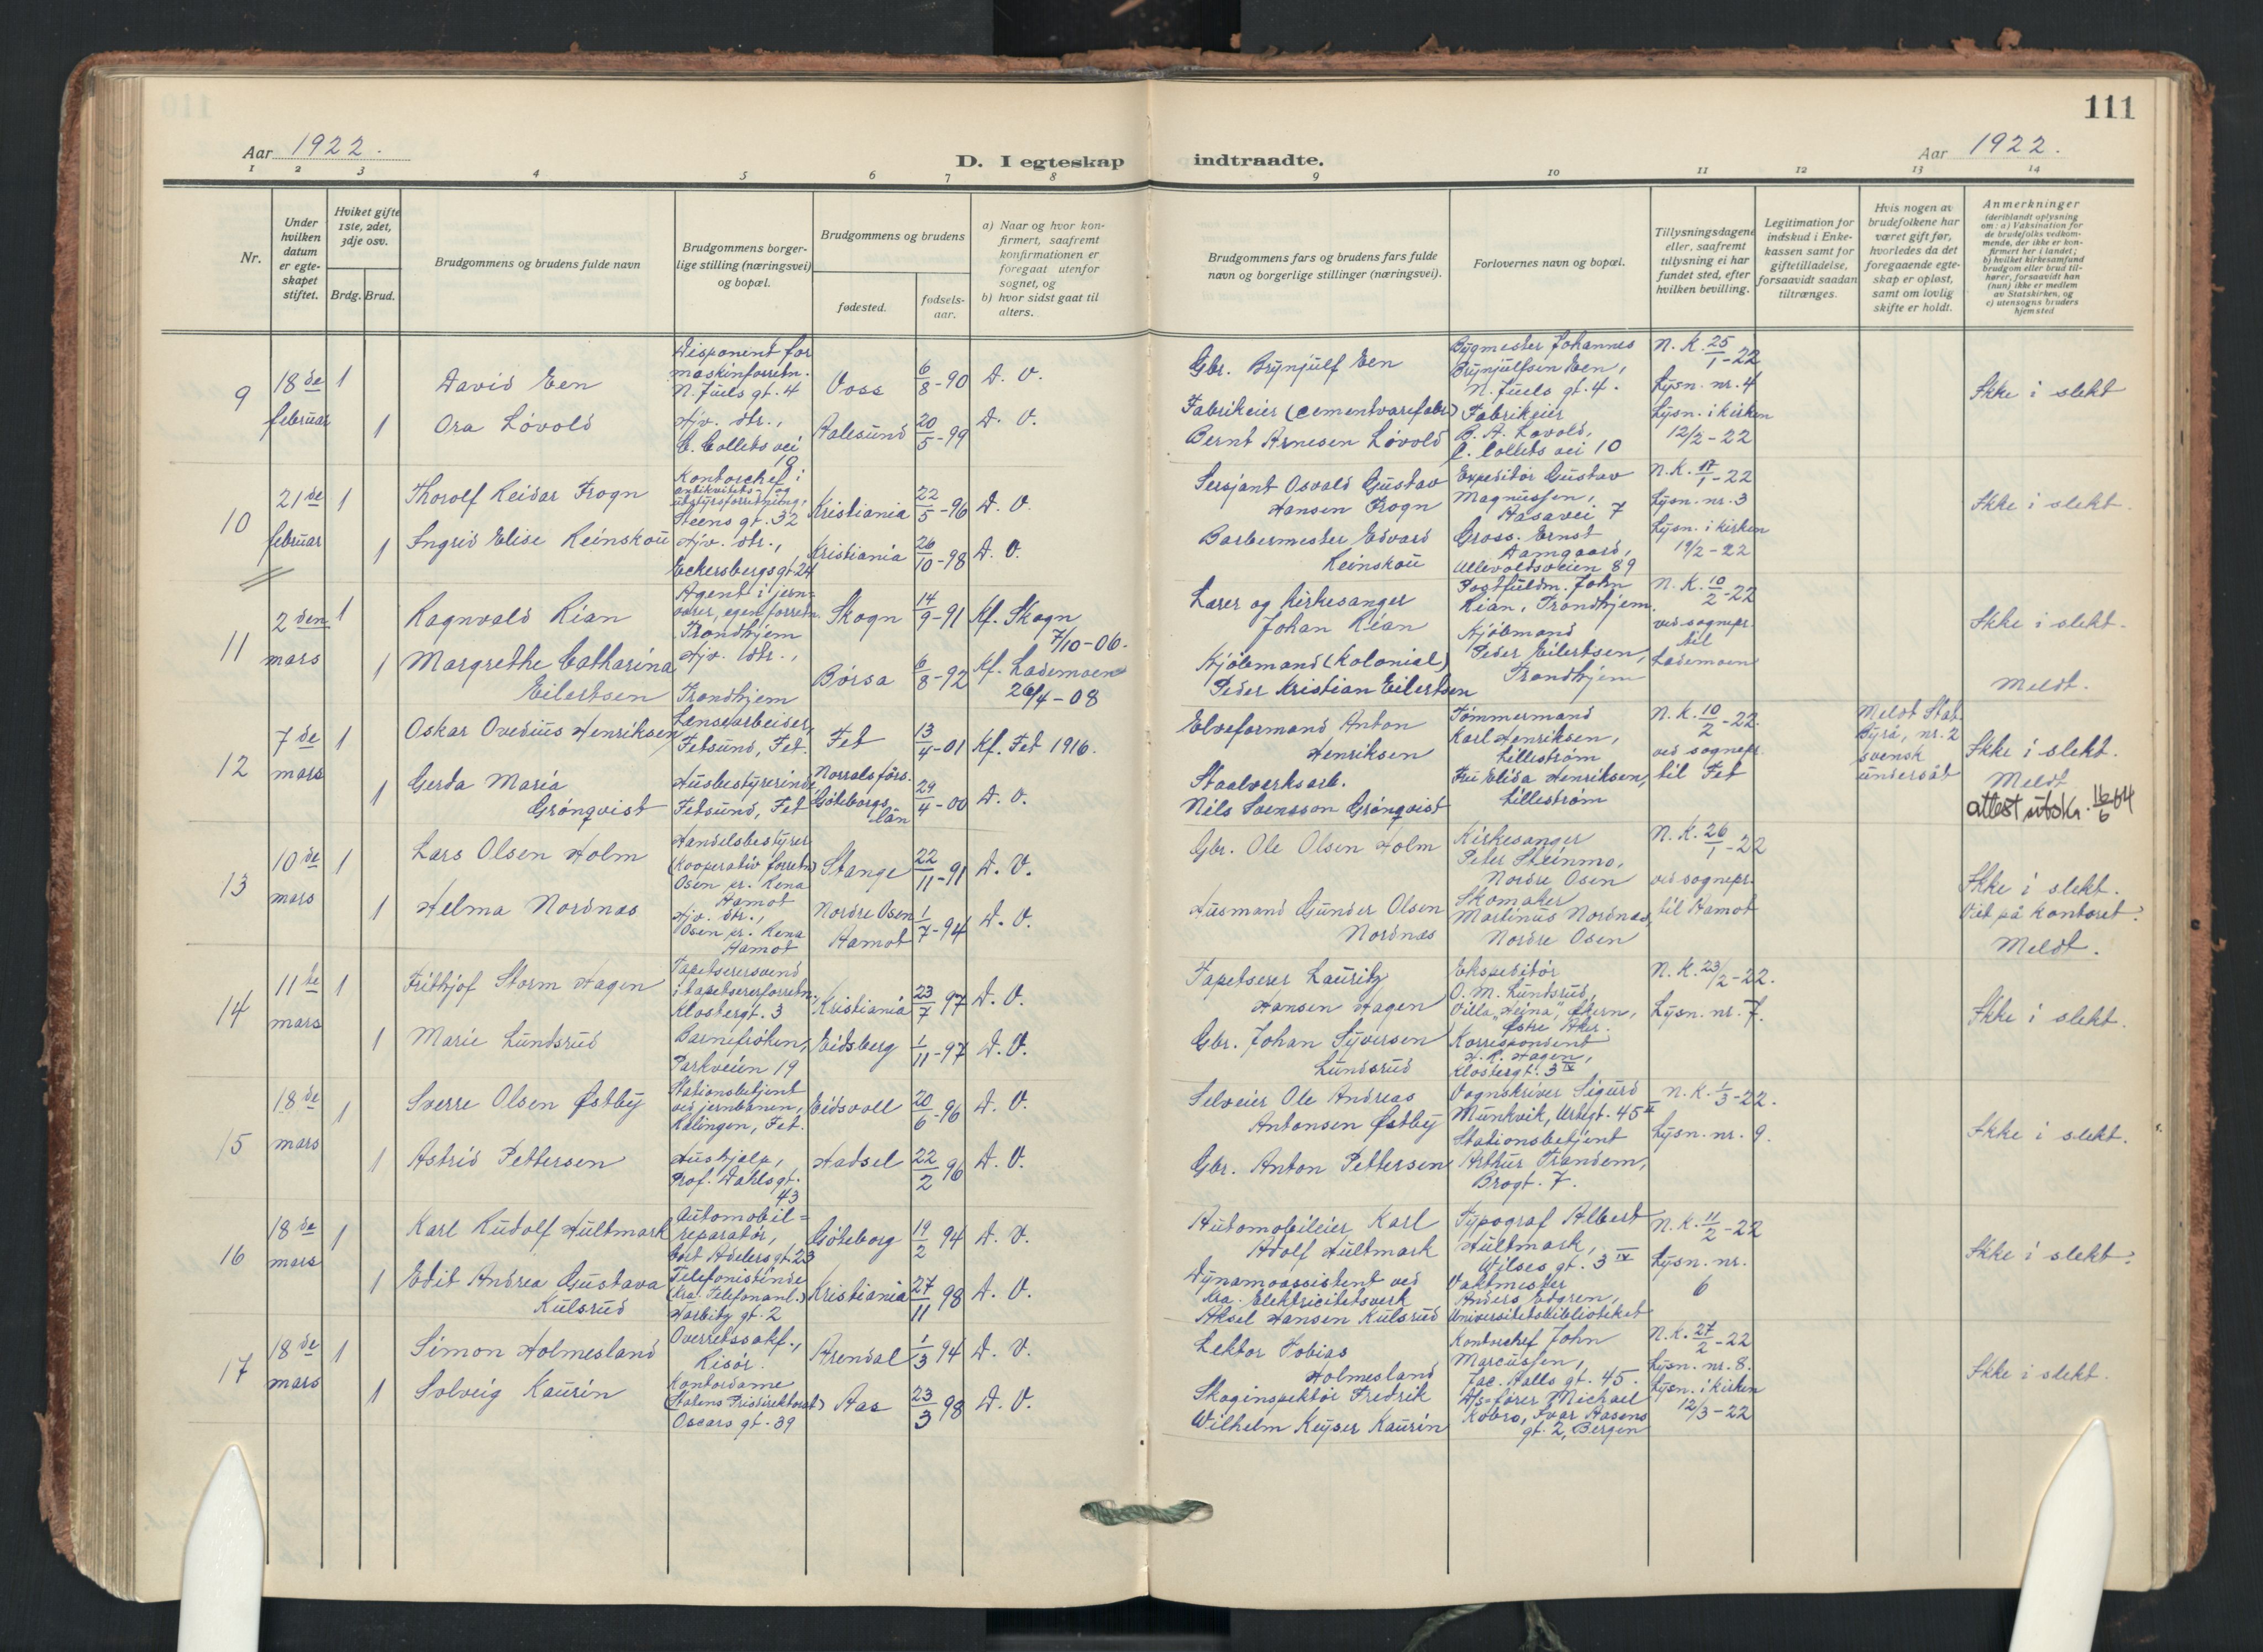 111
Aar 1922.
D. I egteskap indtraadte.
Aar 1922.
1 2 3 4 5 6 7 8 9 10 11 12 13 14
Nr.
Under hvilken datum er egte-skapet stiftet.
Hviket gifte 1ste, 2det, 3dje osv.
Brdg. Brud.
Brudgommens og brudens fulde navn
Brudgommens borger-lige stilling (næringsvei) og bopæl.
Brudgommens og brudens
fødested.
fødsels-aar.
a) Naar og hvor kon-firmert, saafremt konfirmationen er foregaat utenfor sognet, og
b) hvor sidst gaat til alters.
Brudgommens fars og brudens fars fulde navn og borgerlige stillinger (næringsvei).
Forlovernes navn og bopæl.
Tillysningsdagene eller, saafremt tillysning ei har fundet sted, efter hvilken bevilling.
Legitimation for indskud i Enke-kassen samt for giftetilladelse, forsaavidt saadan tiltrænges.
Hvis nogen av brudefolkene har været gift før, hvorledes da det foregaaende egte-skap er opløst, samt om lovlig skifte er holdt.
Anmerkninger
(deriblandt oplysning om: a) Vaksination for de brudefolks vedkom-mende, der ikke er kon-firmert her i landet; b) hvilket kirkesamfund brudgom eller brud til-hører, forsaavidt han (hun) ikke er medlem av Statskirken, og c) utensogns bruders hjemsted
9 18de februar 1 David Een Disponent for maskinforretn. N. Juels gt. 4 Voss 6/8-90 D. V. Gbr. Brynjulf Een Bygmester Johannes Brynjulfsen Een, N. Juels gt. 4. N. K. 25/1-22 Lysn. nr. 4 Ikke i slekt
1 Ora Løvold Hjv. dtr., C. Collets vei 10 Aalesund 20/5-99 D. V. Fabrikeier (cementvarefabr) Bernt Arnesen Løvold Fabrikeier B. A. Løvold, C. Collets vei 10 Lysn. i kirken 12/2-22
10 21de februar 1 Thorolf Reidar Frogn Kontorchef i antikvitets- og utstyrsforretning, Steens gt. 32 Kristiania 22/5-96 D. V. Sersjant Osvald Gustav Hansen Frogn Expeditør Gustav Magnussen, Aasavei 7 N. K. 17/1-22 Lysn. nr. 3 Ikke i slekt.
1 Ingrid Elise Reinskou Hjv. dtr., Eckersbergs gt. 24 Kristiania 26/10-98 D. V. Barbermester Edvard Reinskou Gross. Ernst Aamgaard, Ullevoldsveien 89 Lysn. i kirken 19/2-22
11 2den mars 1 Ragnvald Rian Agent i jern-varer, egen forretn. Trondhjem Skogn 14/9-91 Kf. Skogn 7/10-06. Lærer og kirkesanger Johan Rian Postfuldm. John Rian, Trondhjem. N. K. 10/2-22 ved sognepr. til Lademoen Ikke i slekt.
1 Margrethe Catharina Eilertsen Hjv. dtr., Trondhjem Børsa 6/8-92 Kf. Lademoen 26/4-08 Kjøbmand (Kolonial) Peder Kristian Eilertsen Kjøbmand Peder Eilertsen, Trondhjem Meldt.
12 7de mars 1 Oskar Ovedius Henriksen Lensearbeider, Fetsund, Fet. Fet 13/4-01 Kf. Fet 1916. Elveformand Anton Henriksen Tømmermand Karl Henriksen, Lillestrøm N. K. 10/2-22. ved sognepr. til Fet Meldt Stat. Byrå, nr. 2 svensk undersåt Ikke i slekt.
1 Gerda Maria Grönqvist Husbestyrerinde Fetsund, Fet Göteborgs län 29/4-00 D. V. Staalverksarb. Nils Svensson Grönqvist Fru Elida Henriksen, Lillestrøm Meldt attest utskr. 16/6 64
13 10de mars 1 Lars Olsen Holm Handelsbestyrer (Kooperativ forretn) Osen pr. Rena Aamot Stange 22/11-91 D. V. Gbr. Ole Olsen Holm Kirkesanger Peter Steinmo, Nordre Osen N. K. 26/1-22 ved sognepr. til Aamot Ikke i slekt. Viet på kontoret.
1 Helma Nordnæs Hjv. dtr., Osen pr. Rena Aamot Nordre Osen Aamot 1/7-94 D. V. Husmand Gunder Olsen Nordnæs Skomaker Martinus Nordnæs, Nordre Osen Meldt.
14 11te mars 1 Frithjof Storm Hagen Tapetserersvend i tapetsererforretn., Klostergt. 3 Kristiania 23/7 97 D. V. Tapetserer Lauritz Hansen Hagen Ekspeditør O. M. Lundsrud, Villa "Heina", Økern, Østre Aker. N. K. 23/2-22. Lysn. nr. 7. Ikke i slekt.
1 Marie Lundsrud Barnefrøken, Parkveien 19 Eidsberg 1/11-97 D. V. Gbr. Johan Syversen Lundsrud Korrespondent H. R. Hagen, Klostergt. 3 IV
15 18de mars 1 Sverre Olsen Østby Stationsbetjent ved jernbanen, Rælingen, Fet. Eidsvoll 20/6-96 D. V. Selveier Ole Andreas Antonsen Østby Vognskriver Sigurd Munkvik, Urtegt. 45 II N. K. 1/3-22. Lysn. nr. 9. Ikke i slekt.
1 Astrid Pettersen Hushjelp, Prof. Dahls gt. 43 Hadsel 22/2 96 D. V. Gbr. Anton Pettersen Stationsbetjent Arthur Trandem, Brogt. 7.
16 18de mars 1 Karl Rudolf Hultmark Automobil=reparatør, Cort Adelers gt. 23 Göteborg 19/2 94 D. V. Automobileier Karl Adolf Hultmark Typograf Albert Hultmark, Wilses gt. 3 IV N. K. 11/2-22 Lysn. nr. 6 Ikke i slekt.
1 Edit Andrea Gustava Kulsrud Telefonistinde (Kra. Telefonanl.) Harbitz gt. 2 Kristiania 27/11 98 D. V. Dynamoassistent ved Kra. Elektricitetsverk Aksel Hansen Kulsrud Vaktmester Anders Edgren, Universitetsbiblioteket
17 18de mars 1 Simon Holmesland Overretssakf., Risør. Arendal 1/3 94 D. V. Lektor Tobias Holmesland Kontorchef John Marcussen, Jac. Aalls gt. 45. N. K. 27/2-22 Lysn. nr. 8. Ikke i slekt.
1 Solveig Kaurin Kontordame (Statens Prisdirektorat) Oscars gt. 39 Aas 23/3 98 D. V. Skoginspektør Fredrik Wilhelm Keyser Kaurin Michael Kobro, Ivar Aasens gt. 2, Bergen Lysn. i kirken 12/3-22